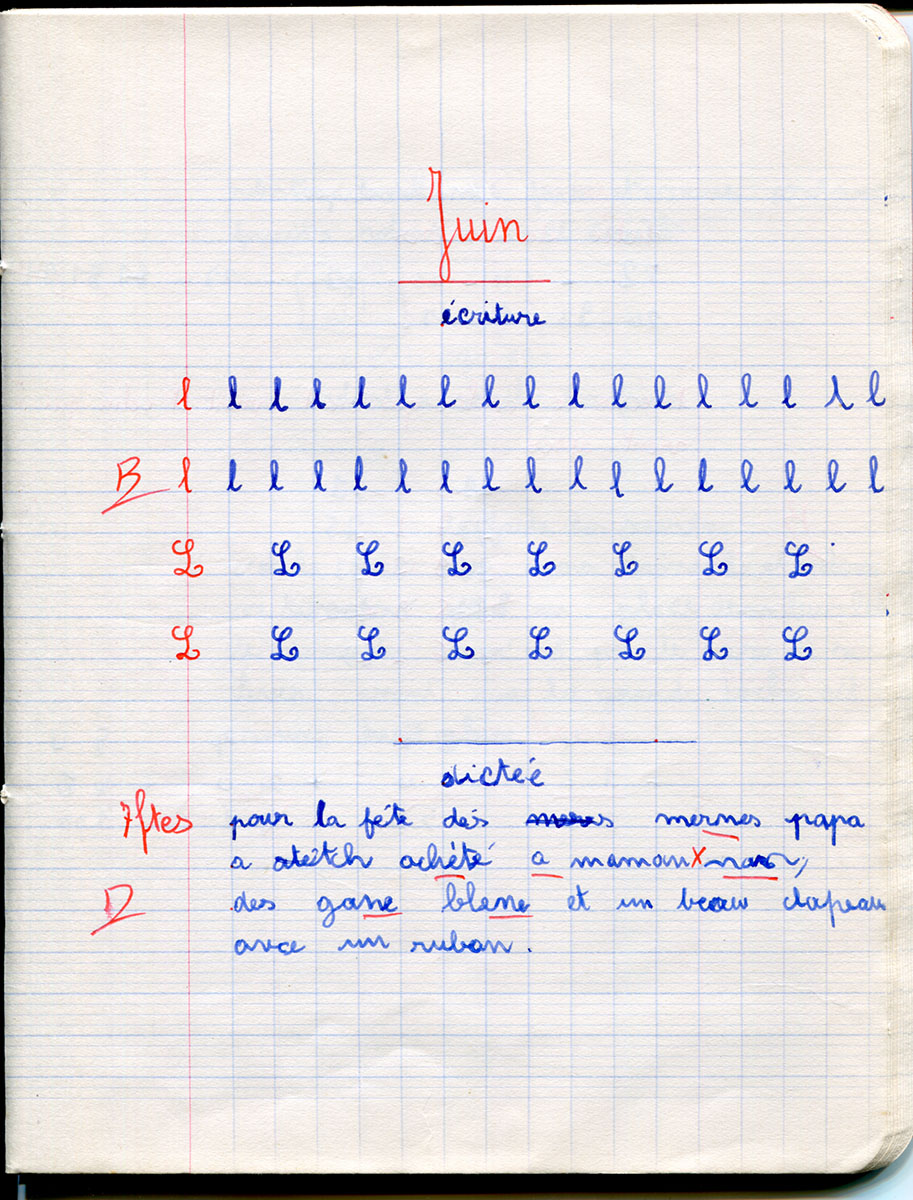 Juin
écriture
l l l l l l l l l l l l l l l l l
B l l l l l l l l l l l l l l l l l
L L L L L L L L
L L L L L L L L
dictée
7ftes pour la féte dés mernes papa
a achété a maman x
D des gane blene et un beau clapeau
avce un ruban.